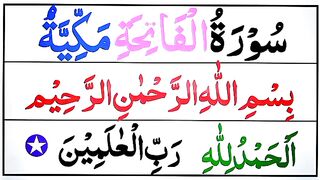 سُوْرَةُ الْفَاتِحَةِ مَكِّيَّةٌ
بِسْمِ اللّٰهِ الرَّحْمٰنِ الرَّحِيْمِ
اَلْحَمْدُ لِلّٰهِ رَبِّ الْعٰلَمِيْنَ